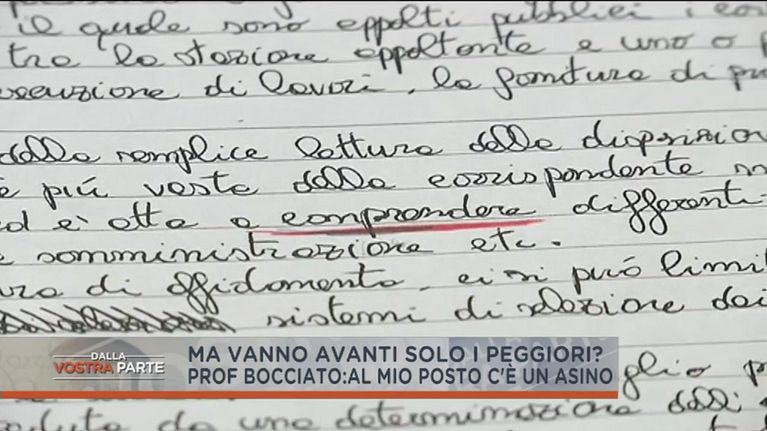 il quale sono eppolti pubblici i con
tra la stazione appaltante e uno o
esecuzione di lavori, la fornitura di pr
dalla semplice lettura delle disposizion
è più vasta della corrispondente
ed è atta a comprendere differenti
somministrazione etc.
di affidamento, ci si può limi
sistemi di selezione dai
DALLA
VOSTRA PARTE
MA VANNO AVANTI SOLO I PEGGIORI?
PROF BOCCIATO:AL MIO POSTO C'È UN ASINO
glio p
da una determinazione dell